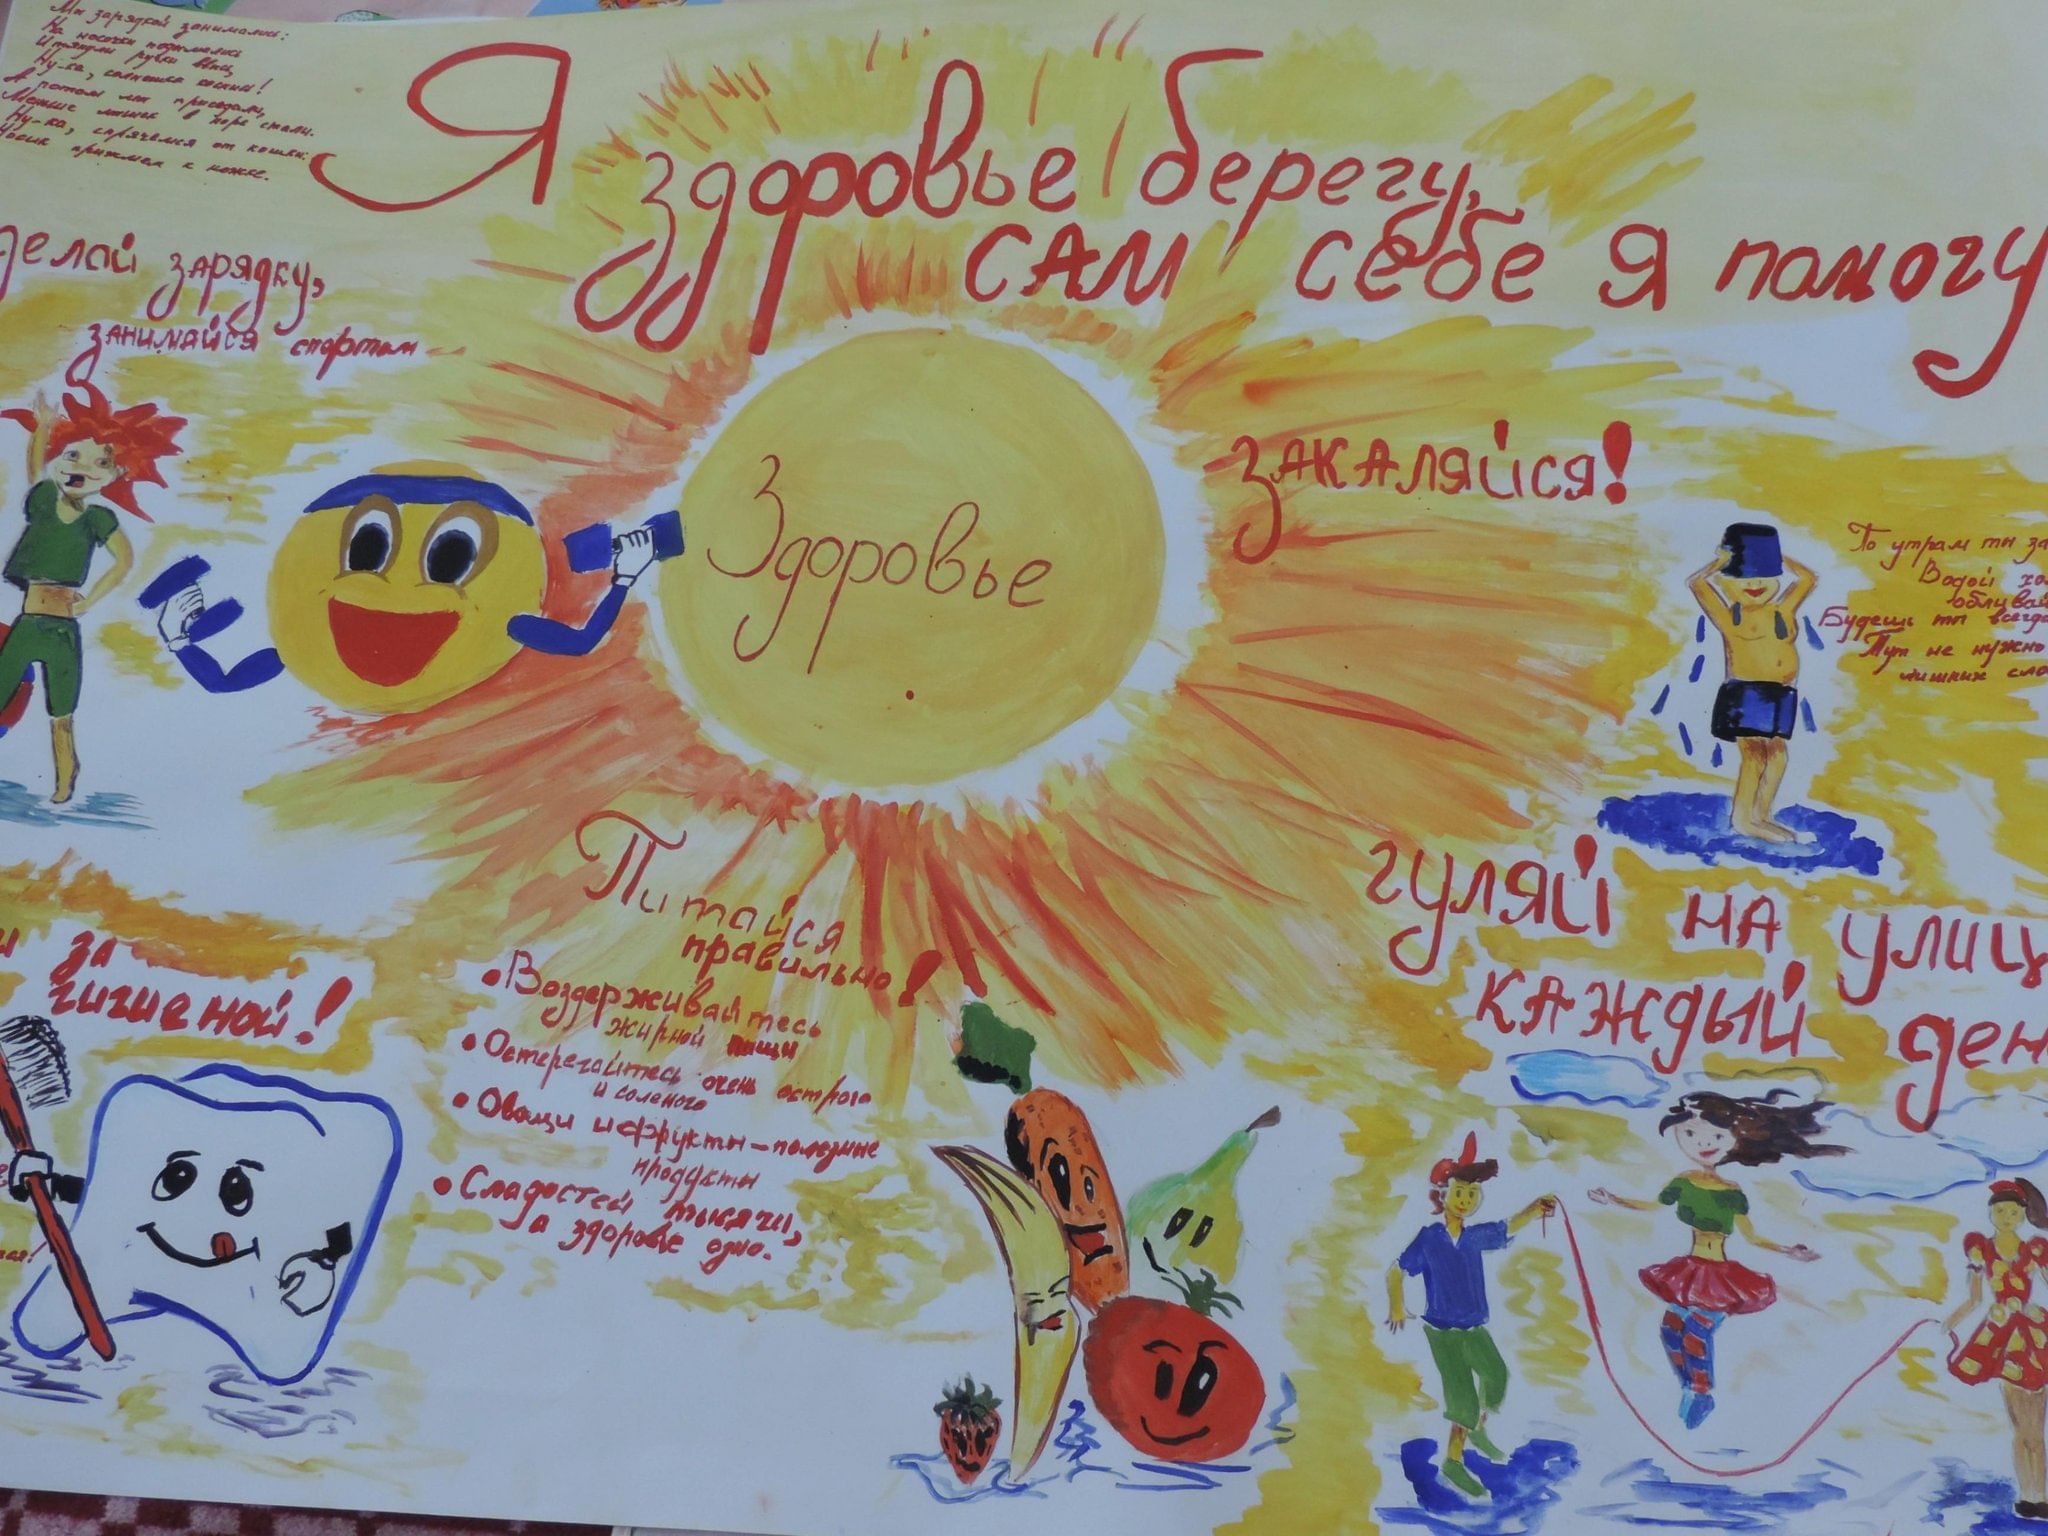 Мы зарядкой занимались:
На носочки поднимались
И тянули ручки ввысь
Ну-ка, солнышка коснись!
А потом мы приседали,
Меньше мышек в норе стали.
Ну-ка, спрячемся от кошки:
Носик прижмем к ножке.
Я здоровье берегу,
сам себе я помогу
делай зарядку,
занимайся спортом
Здоровье
закаляйся!
По утрам ты за
Водой хо
обливай
Будешь ты всегда
Тут не нужно
лишних сло
гуляй на улиц
каждый ден
и за
гигиеной!
Питайся
правильно!
• Воздерживайтесь
жирной пищи
• Остерегайтесь очень острого
и соленого
• Овощи и фрукты – полезные
продукты
• Сладостей тысячи,
а здоровье одно.